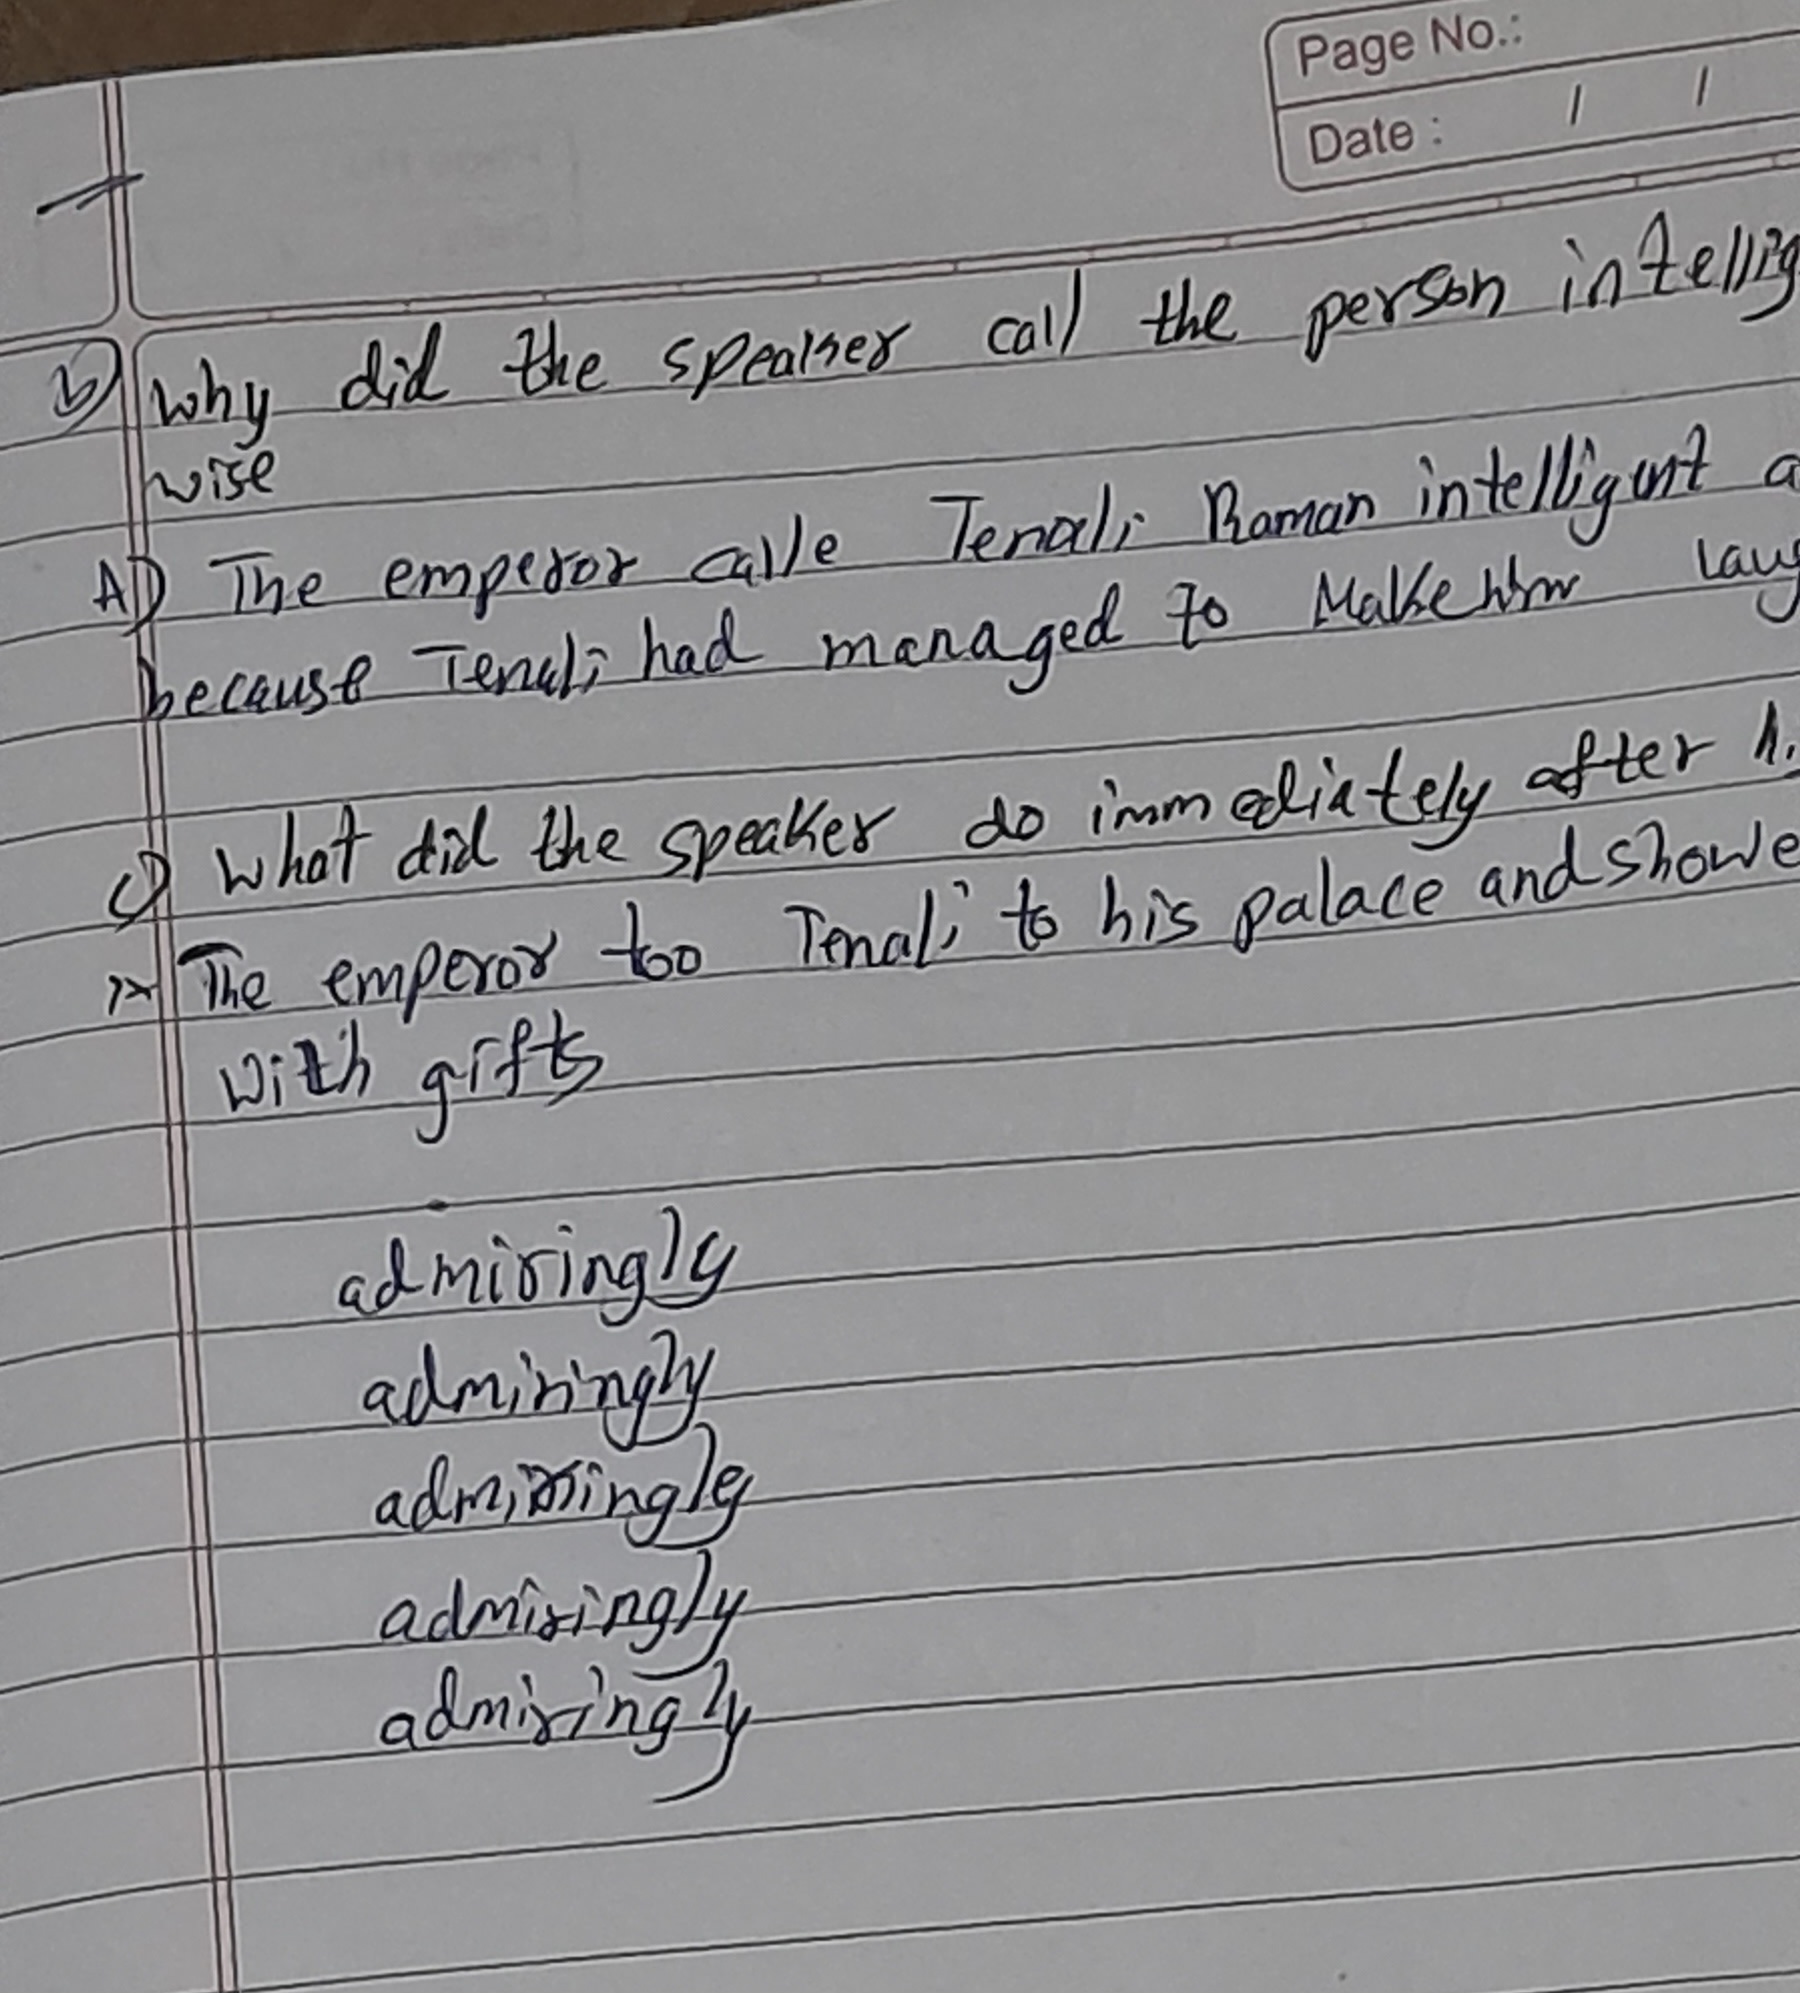 Page No.:
Date : / /
b) Why did the speaker call the person intellig
wise
A) The emperor calle Tenali Raman intelligent a
because Tenali had managed to Make him laug
c) What did the speaker do immediately after hi
The emperor too Tenali to his palace and showe
with gifts
admiringly
admiringly
admiringly
admiringly
admiringly